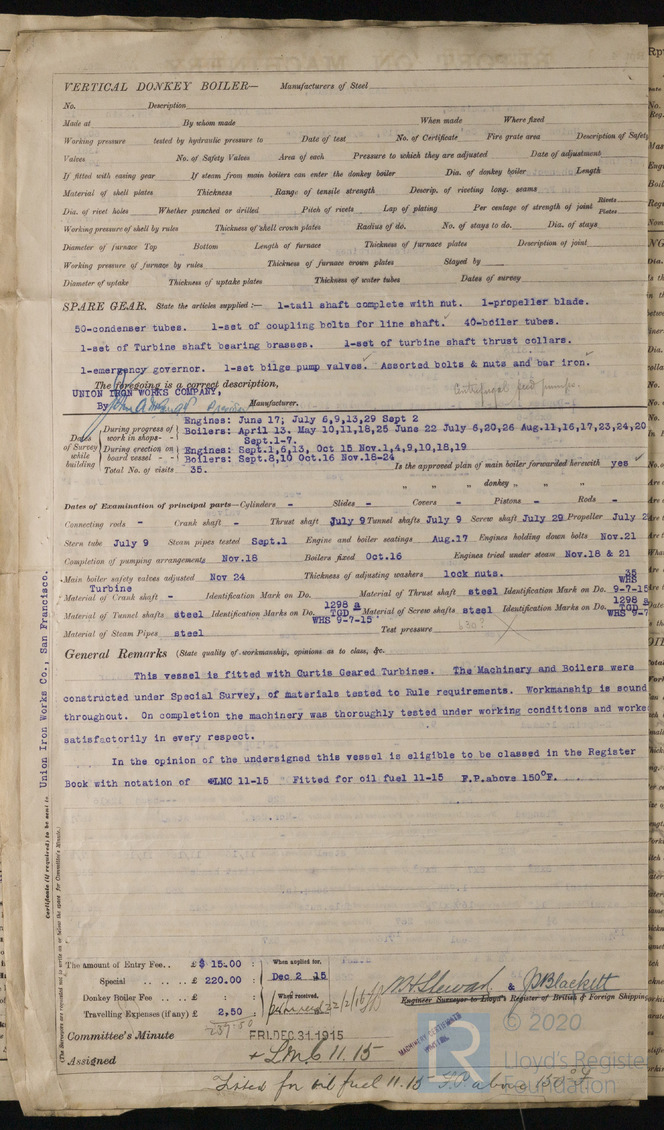 VERTICAL DONKEY BOILER— Manufacturers of Steel
No. Description
Made at By whom made When made Where fixed
Working pressure tested by hydraulic pressure to Date of test No. of Certificate Fire grate area Description of Safety
Valves No. of Safety Valves Area of each Pressure to which they are adjusted Date of adjustment
If fitted with easing gear If steam from main boilers can enter the donkey boiler Dia. of donkey boiler Length
Material of shell plates Thickness Range of tensile strength Descrip. of riveting long. seams
Dia. of rivet holes Whether punched or drilled Pitch of rivets Lap of plating Per centage of strength of joint Rivets Plates
Working pressure of shell by rules Thickness of shell crown plates Radius of do. No. of stays to do. Dia. of stays
Diameter of furnace Top Bottom Length of furnace Thickness of furnace plates Description of joint
Working pressure of furnace by rules Thickness of furnace crown plates Stayed by
Diameter of uptake Thickness of uptake plates Thickness of water tubes Dates of survey
SPARE GEAR. State the articles supplied:— 1-tail shaft complete with nut. 1-propeller blade.
50-condenser tubes. 1-set of coupling bolts for line shaft. 40-boiler tubes.
1-set of Turbine shaft bearing brasses. 1-set of turbine shaft thrust collars.
1-emergency governor. 1-set bilge pump valves. Assorted bolts & nuts and bar iron.
The foregoing is a correct description,
Centrifugal feed pumps.
UNION IRON WORKS COMPANY,
By Manufacturer.
Dates of Survey while building
During progress of work in shops - -
Engines: June 17; July 6,9,13,29 Sept 2
Boilers: April 13. May 10,11,18,25 June 22 July 6,20,26 Aug.11,16,17,23,24,20
Sept.1-7.
During erection on board vessel - -
Engines: Sept.1,6,13, Oct 15 Nov.1,4,9,10,18,19
Boilers: Sept.8,10 Oct.16 Nov.18-24
Total No. of visits 35. Is the approved plan of main boiler forwarded herewith yes
" " " donkey " " "
Dates of Examination of principal parts—Cylinders - Slides - Covers - Pistons - Rods -
Connecting rods - Crank shaft - Thrust shaft July 9 Tunnel shafts July 9 Screw shaft July 29 Propeller July 2
Stern tube July 9 Steam pipes tested Sept.1 Engine and boiler seatings Aug.17 Engines holding down bolts Nov.21
Completion of pumping arrangements Nov.18 Boilers fixed Oct.16 Engines tried under steam Nov.18 & 21
Main boiler safety valves adjusted Nov 24 Thickness of adjusting washers lock nuts.
Turbine
Material of Crank shaft - Identification Mark on Do. Material of Thrust shaft steel Identification Mark on Do. 35 WHS 9-7-15
Material of Tunnel shafts steel Identification Marks on Do. 1298 a TGD WHS 9-7-15 Material of Screw shafts steel Identification Marks on Do. 1298 a TGD WHS 9-7
Material of Steam Pipes steel Test pressure 630?
General Remarks (State quality of workmanship, opinions as to class, &c.
This vessel is fitted with Curtis Geared Turbines. The Machinery and Boilers were
constructed under Special Survey, of materials tested to Rule requirements. Workmanship is sound
throughout. On completion the machinery was thoroughly tested under working conditions and worke
satisfactorily in every respect.
In the opinion of the undersigned this vessel is eligible to be classed in the Register
Book with notation of LMC 11-15 Fitted for oil fuel 11-15 F.P.above 150°F.
Certificate (if required) to be sent to Union Iron Works Co., San Francisco.
(The Surveyors are requested not to write on or below the space for Committee's Minute.)
The amount of Entry Fee.. £$ 15.00 : When applied for,
Special .. .. .. £ 220.00 : Dec 2 15
Donkey Boiler Fee .. .. £ : When received,
Travelling Expenses (if any) £ 2,50 :
237.50
& J Blackett
Engineer Surveyor to Lloyd's Register of British & Foreign Shipping
Committee's Minute FRI.DEC.31.1915
Assigned + LMC 11.15
Fitted for oil fuel 11.15 F.P. above 150°F
MACHINERY CERTIFICATE
© 2020
Lloyd's Register
Foundation